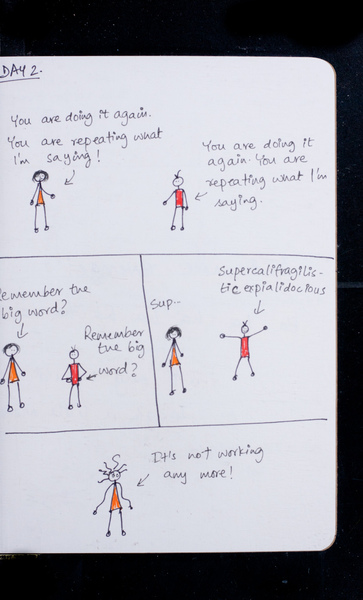 DAY 2.
You are doing it again.
You are repeating what
I'm saying!
You are doing it
again. You are
repeating what I'm
saying.
Remember the
big word?
Remember
the big
word?
Sup--
Supercalifragilis-
ticexpialidocious
It's not working
any more!